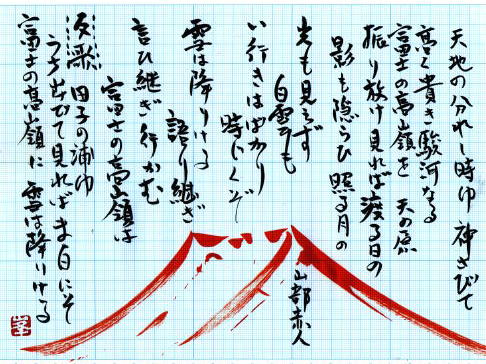 天地の分れし時ゆ 神さびて
高く貴き駿河なる
富士の高嶺を 天の原
振り放け見れば 渡る日の
影も隠らひ 照る月の
光も見えず
白雲も
い行きはばかり
時じくぞ
雪は降りける
語り継ぎ
言ひ継ぎ行かむ
富士の高嶺は
山部赤人
反歌 田子の浦ゆ
うち出でて見れば ま白にぞ
富士の高嶺に 雪は降りける